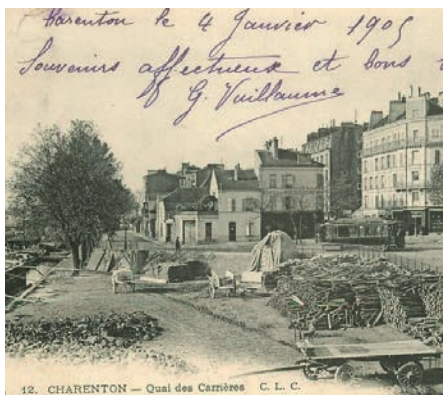 Charenton le 4 Janvier 1905
Souvenirs affectueux et bons
G. Vuillaume
12. CHARENTON — Quai des Carrières C. L. C.